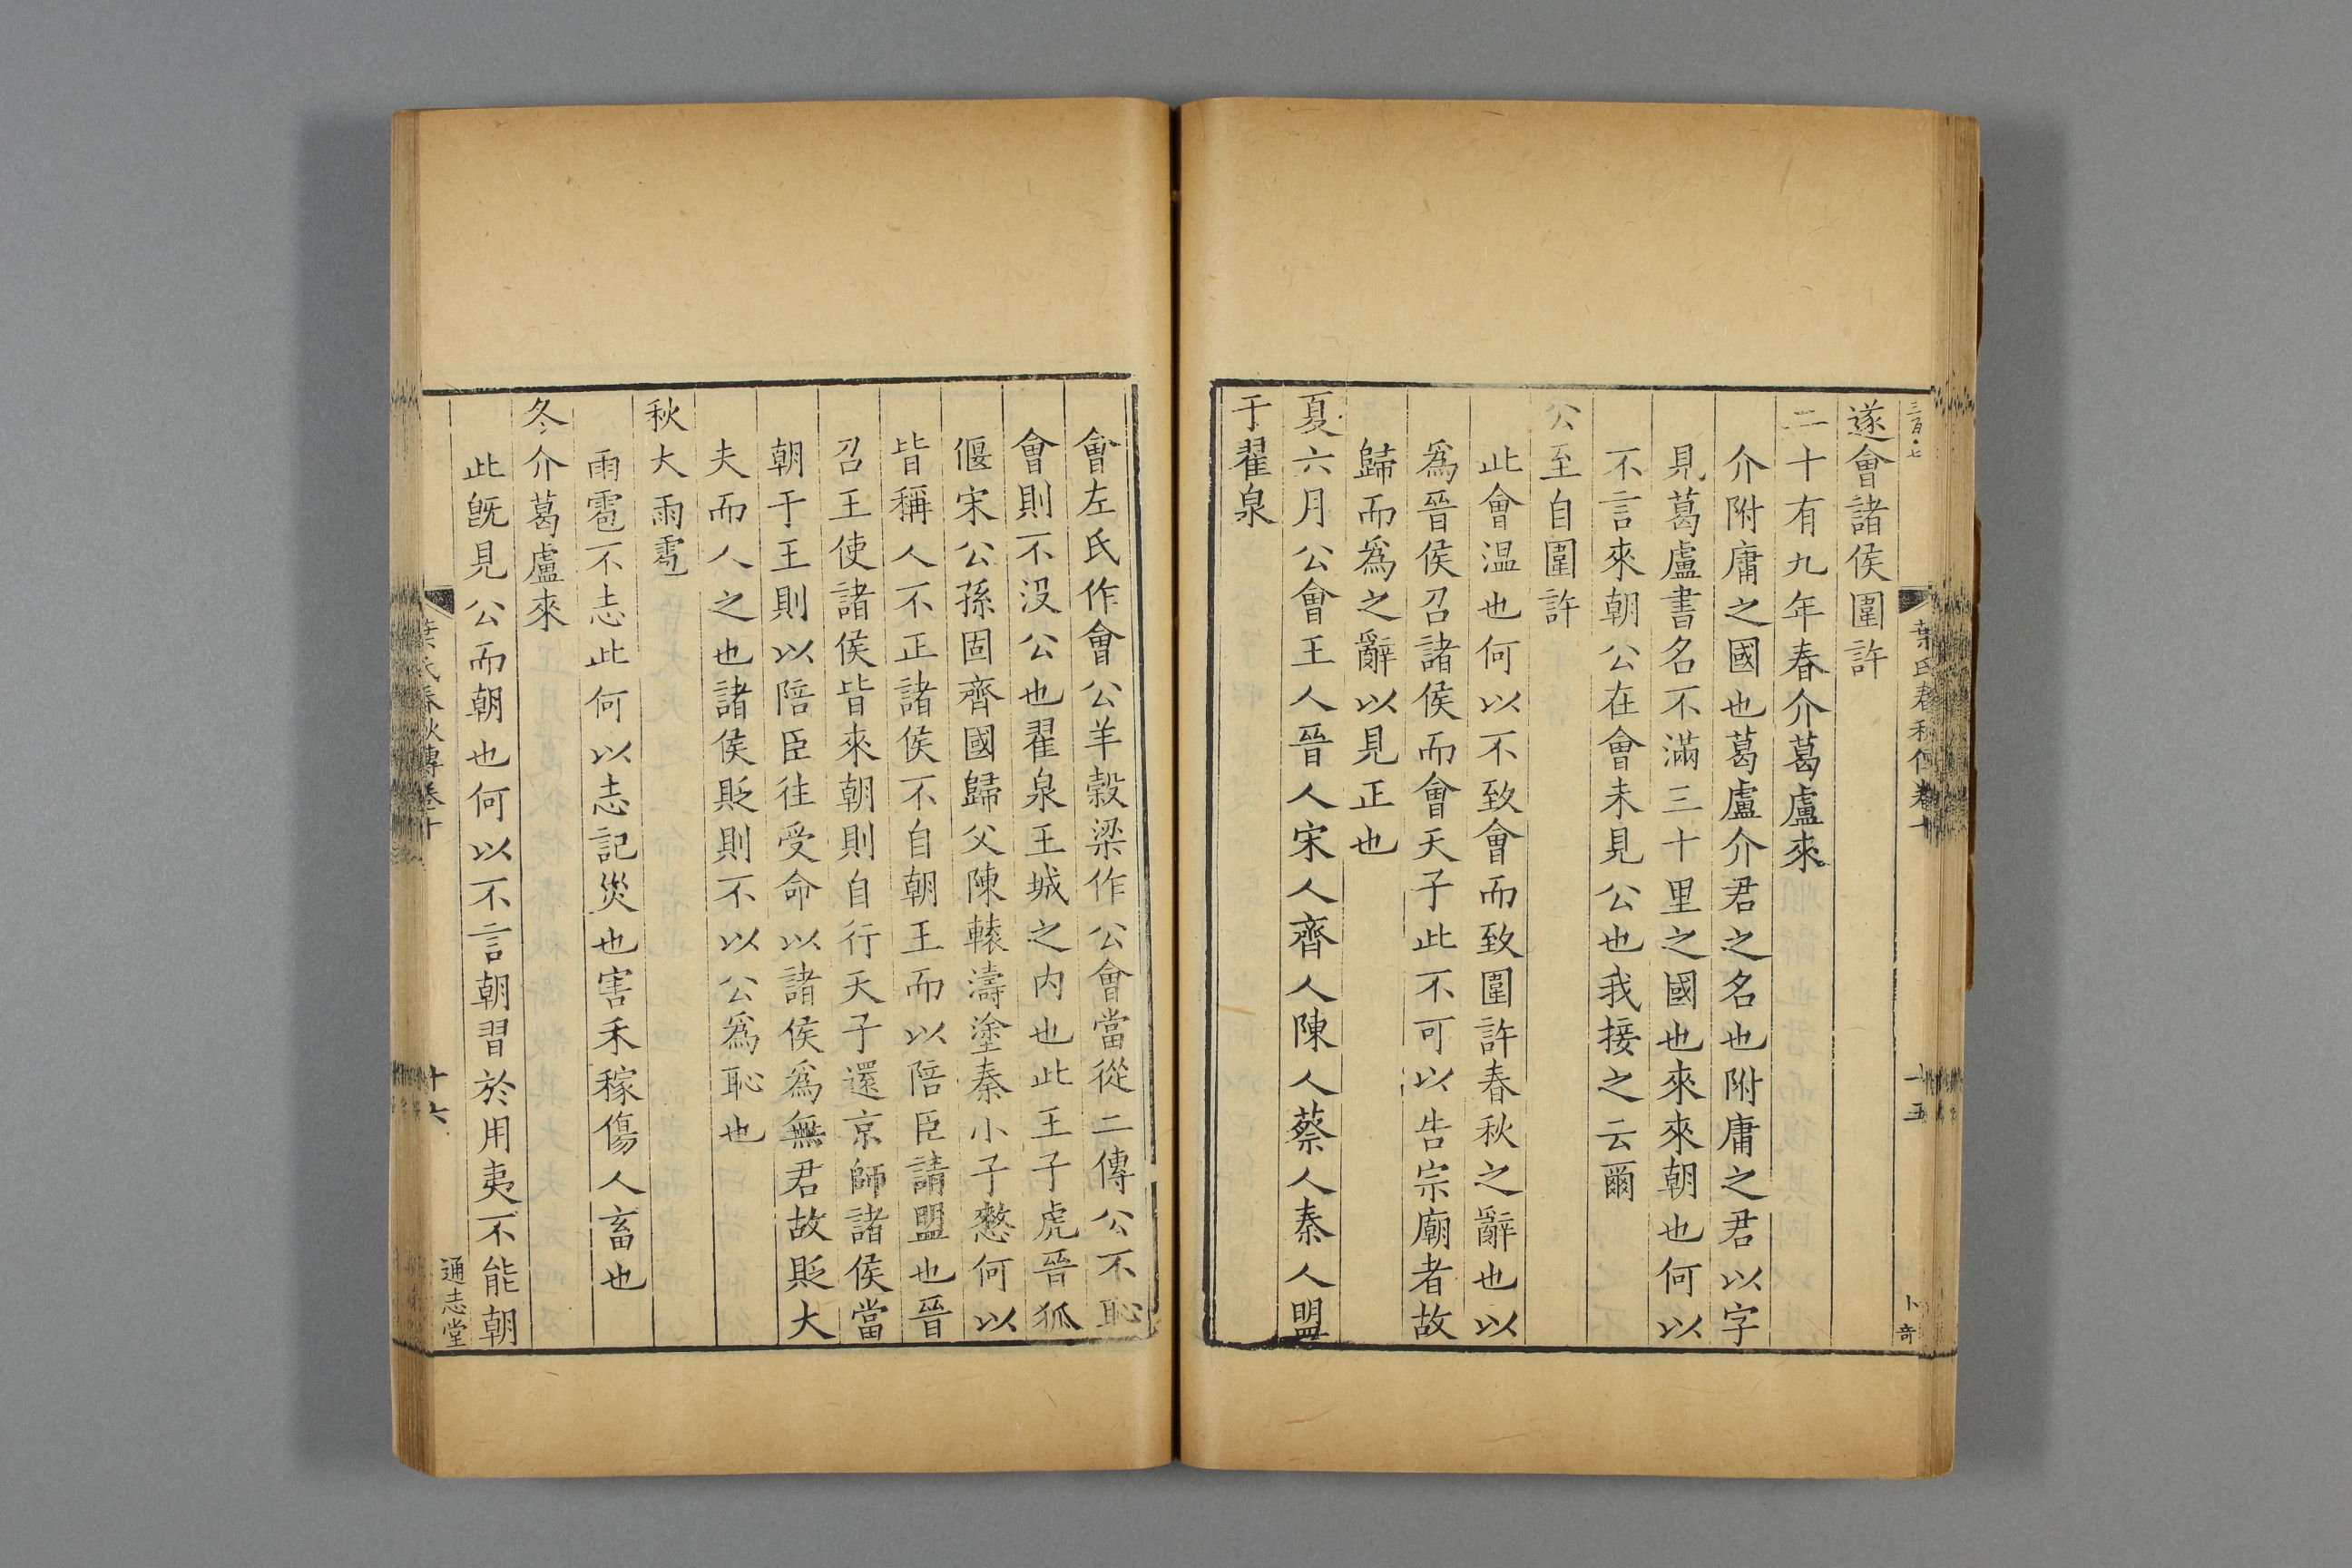 遂會諸侯圍許
二十有九年春介葛盧來
介附庸之國也葛盧介君之名也附庸之君以字
見葛盧書名不滿三十里之國也來來朝也何以
不言來朝公在會未見公也我接之云爾
公至自圍許
此會温也何以不致會而致圍許春秋之辭也以
爲晉侯召諸侯而會天子此不可以告宗廟者故
歸而爲之辭以見正也
夏六月公會王人晉人宋人齊人陳人蔡人秦人盟
于翟泉
會左氏作會公羊穀梁作公會當從二傳公不恥
會則不没公也翟泉王城之内也此王子虎晉狐
偃宋公孫固齊國歸父陳轅濤塗秦小子憗何以
皆稱人不正諸侯不自朝王而以陪臣請盟也晉
召王使諸侯皆來朝則自行天子還京師諸侯當
朝于王則以陪臣往受命以諸侯爲無君故貶大
夫而人之也諸侯貶則不以公爲恥也
秋大雨雹
雨雹不志此何以志記災也害禾稼傷人畜也
冬介葛盧來
此旣見公而朝也何以不言朝習於用夷不能朝
葉氏春秋傳卷十
十六
通志堂